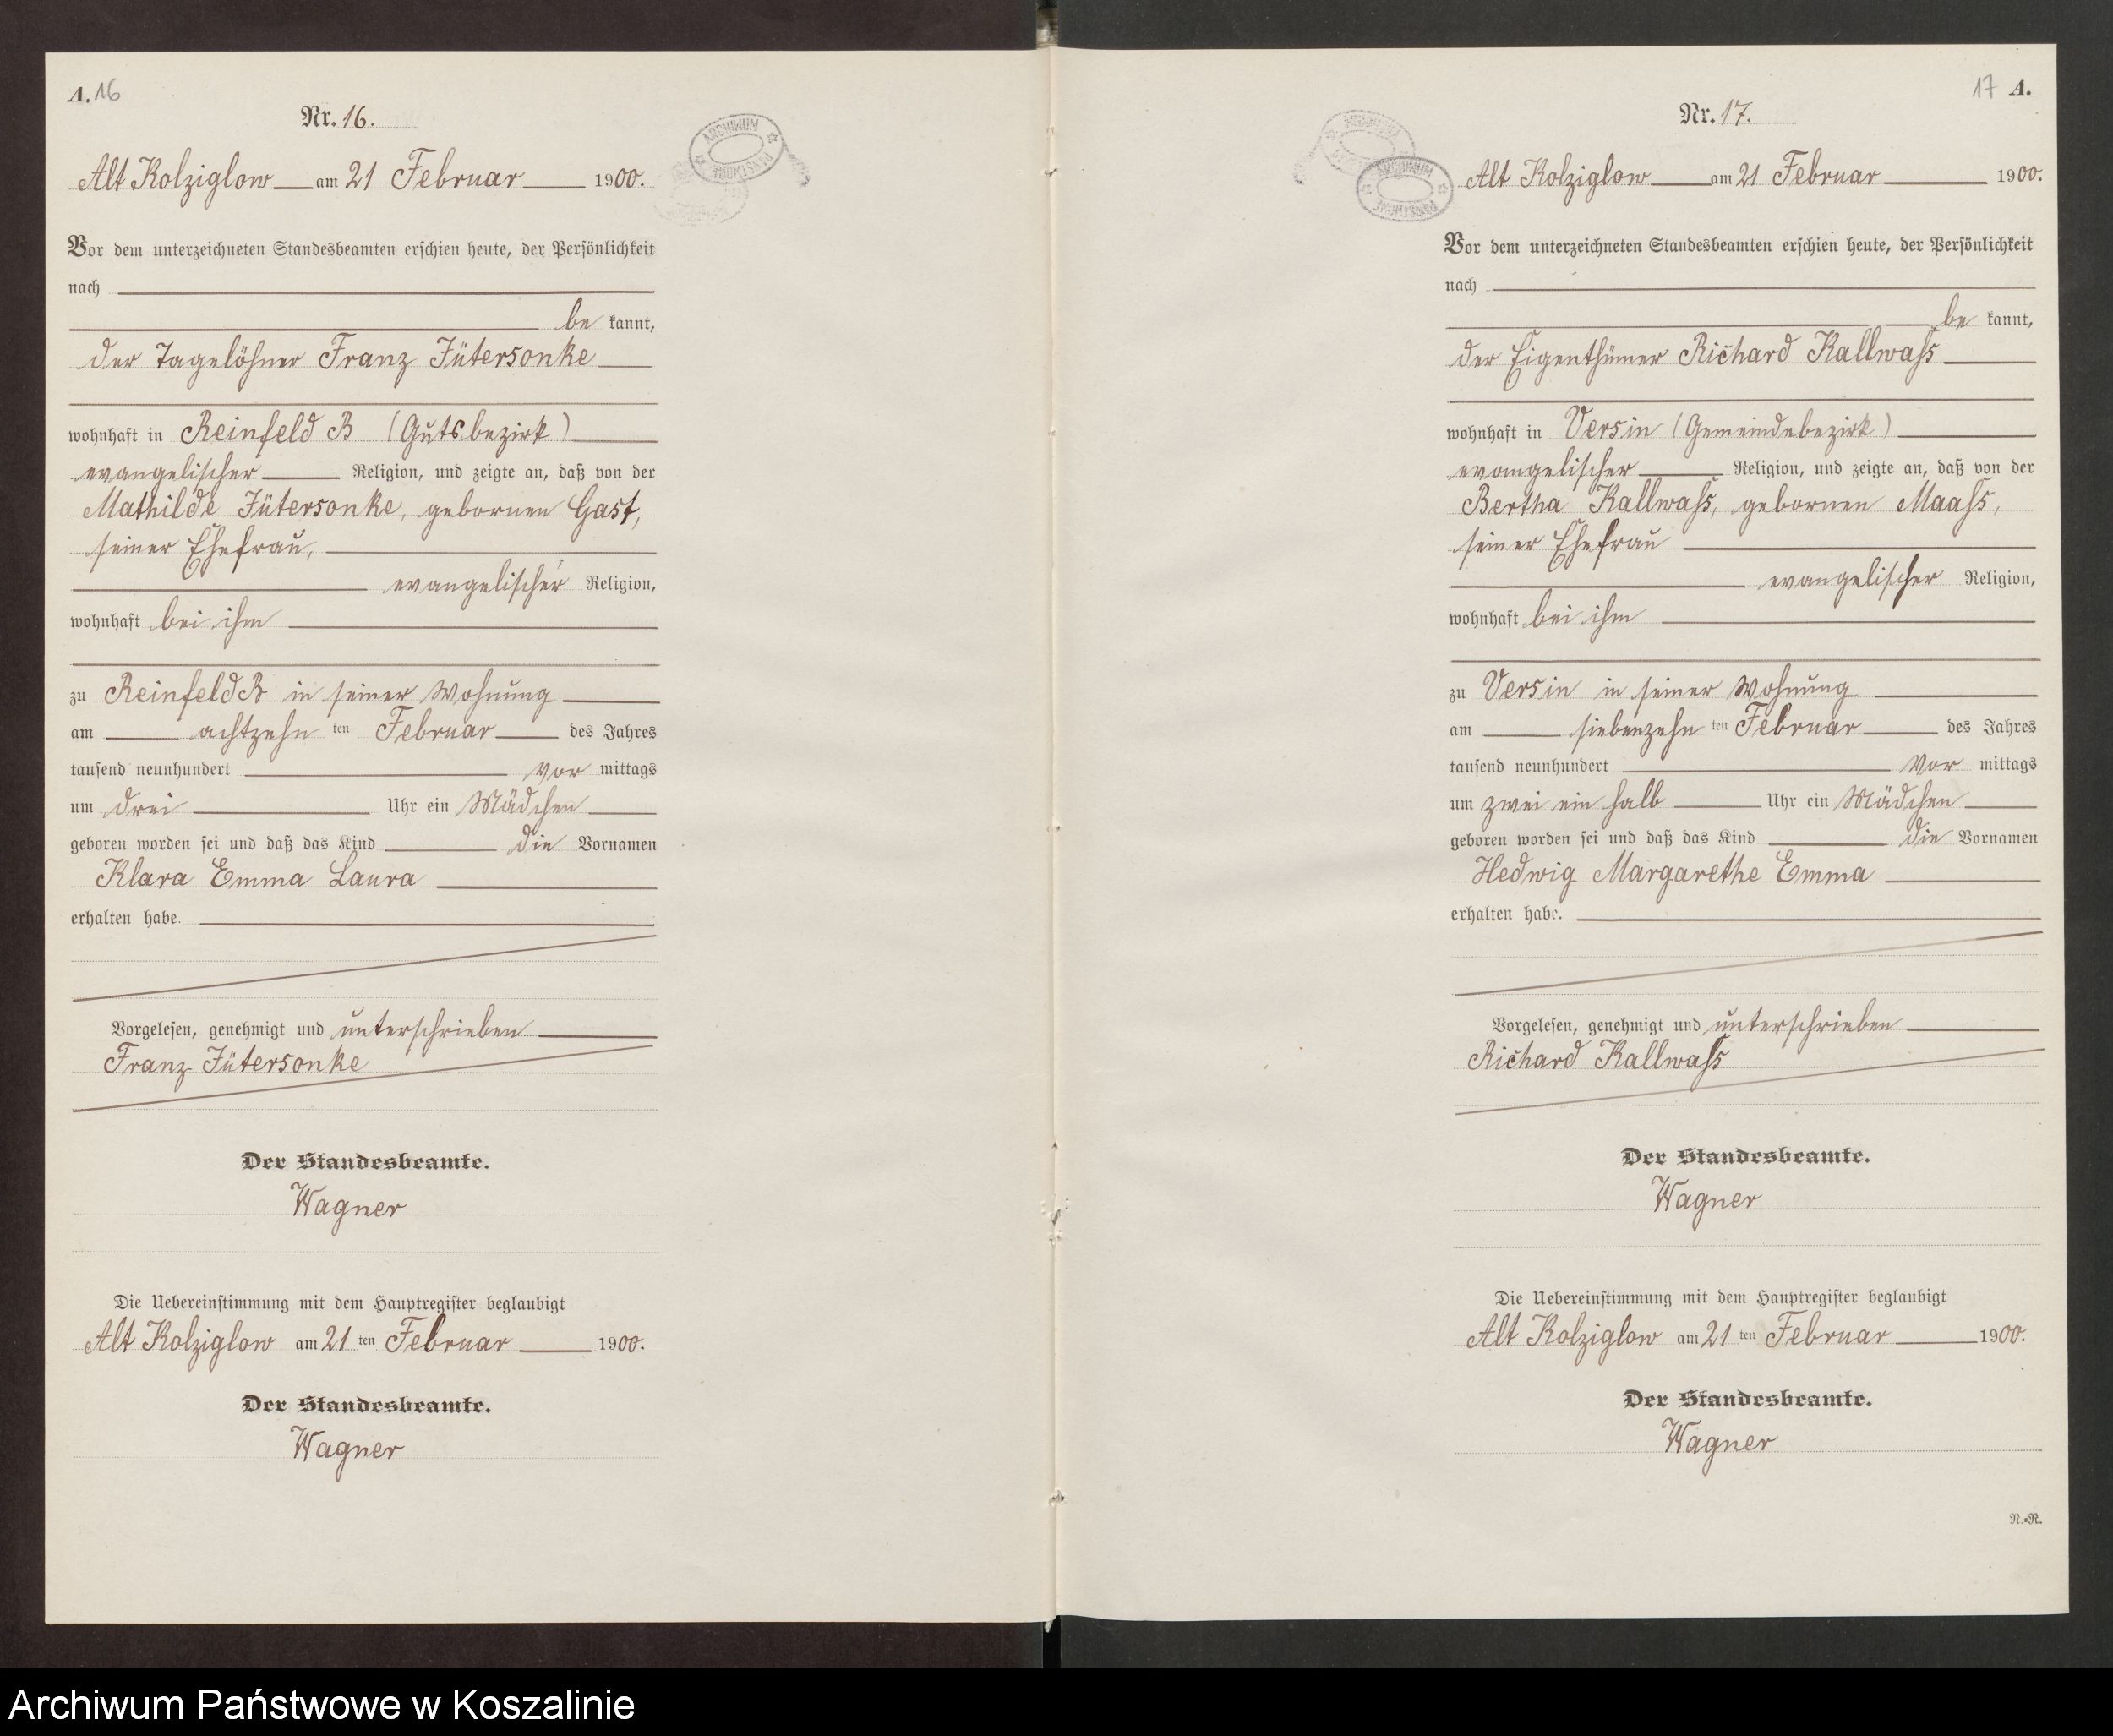 A. 16
Nr. 16.
Alt Kolziglow am 21 Februar 1900.
Vor dem unterzeichneten Standesbeamten erschien heute, der Persönlichkeit
nach
be kannt,
der Tagelöhner Franz Jütersonke
wohnhaft in Reinfeld B (Gutsbezirk)
evangelischer Religion, und zeigte an, daß von der
Mathilde Jütersonke, gebornen Gast,
seiner Ehefrau,
evangelischer Religion,
wohnhaft bei ihm
zu Reinfeld B in seiner Wohnung
am achtzehn ten Februar des Jahres
tausend neunhundert Vor mittags
um drei Uhr ein Mädchen
geboren worden sei und daß das Kind die Vornamen
Klara Emma Laura
erhalten habe.
Vorgelesen, genehmigt und unterschrieben
Franz Jütersonke
Der Standesbeamte.
Wagner
Die Uebereinstimmung mit dem Hauptregister beglaubigt
Alt Kolziglow am 21 ten Februar 1900.
Der Standesbeamte.
Wagner
ARCHIWUM PAŃSTWOWE
17 A.
Nr. 17.
Alt Kolziglow am 21 Februar 1900.
Vor dem unterzeichneten Standesbeamten erschien heute, der Persönlichkeit
nach
be kannt,
der Eigenthümer Richard Kallwaß
wohnhaft in Versin (Gemeindebezirk)
evangelischer Religion, und zeigte an, daß von der
Bertha Kallwaß, gebornen Maaß,
seiner Ehefrau
evangelischer Religion,
wohnhaft bei ihm
zu Versin in seiner Wohnung
am siebenzehn ten Februar des Jahres
tausend neunhundert Vor mittags
um zwei ein halb Uhr ein Mädchen
geboren worden sei und daß das Kind die Vornamen
Hedwig Margarethe Emma
erhalten habe.
Vorgelesen, genehmigt und unterschrieben
Richard Kallwaß
Der Standesbeamte.
Wagner
Die Uebereinstimmung mit dem Hauptregister beglaubigt
Alt Kolziglow am 21 ten Februar 1900.
Der Standesbeamte.
Wagner
N.=R.
ARCHIWUM PAŃSTWOWE
Archiwum Państwowe w Koszalinie